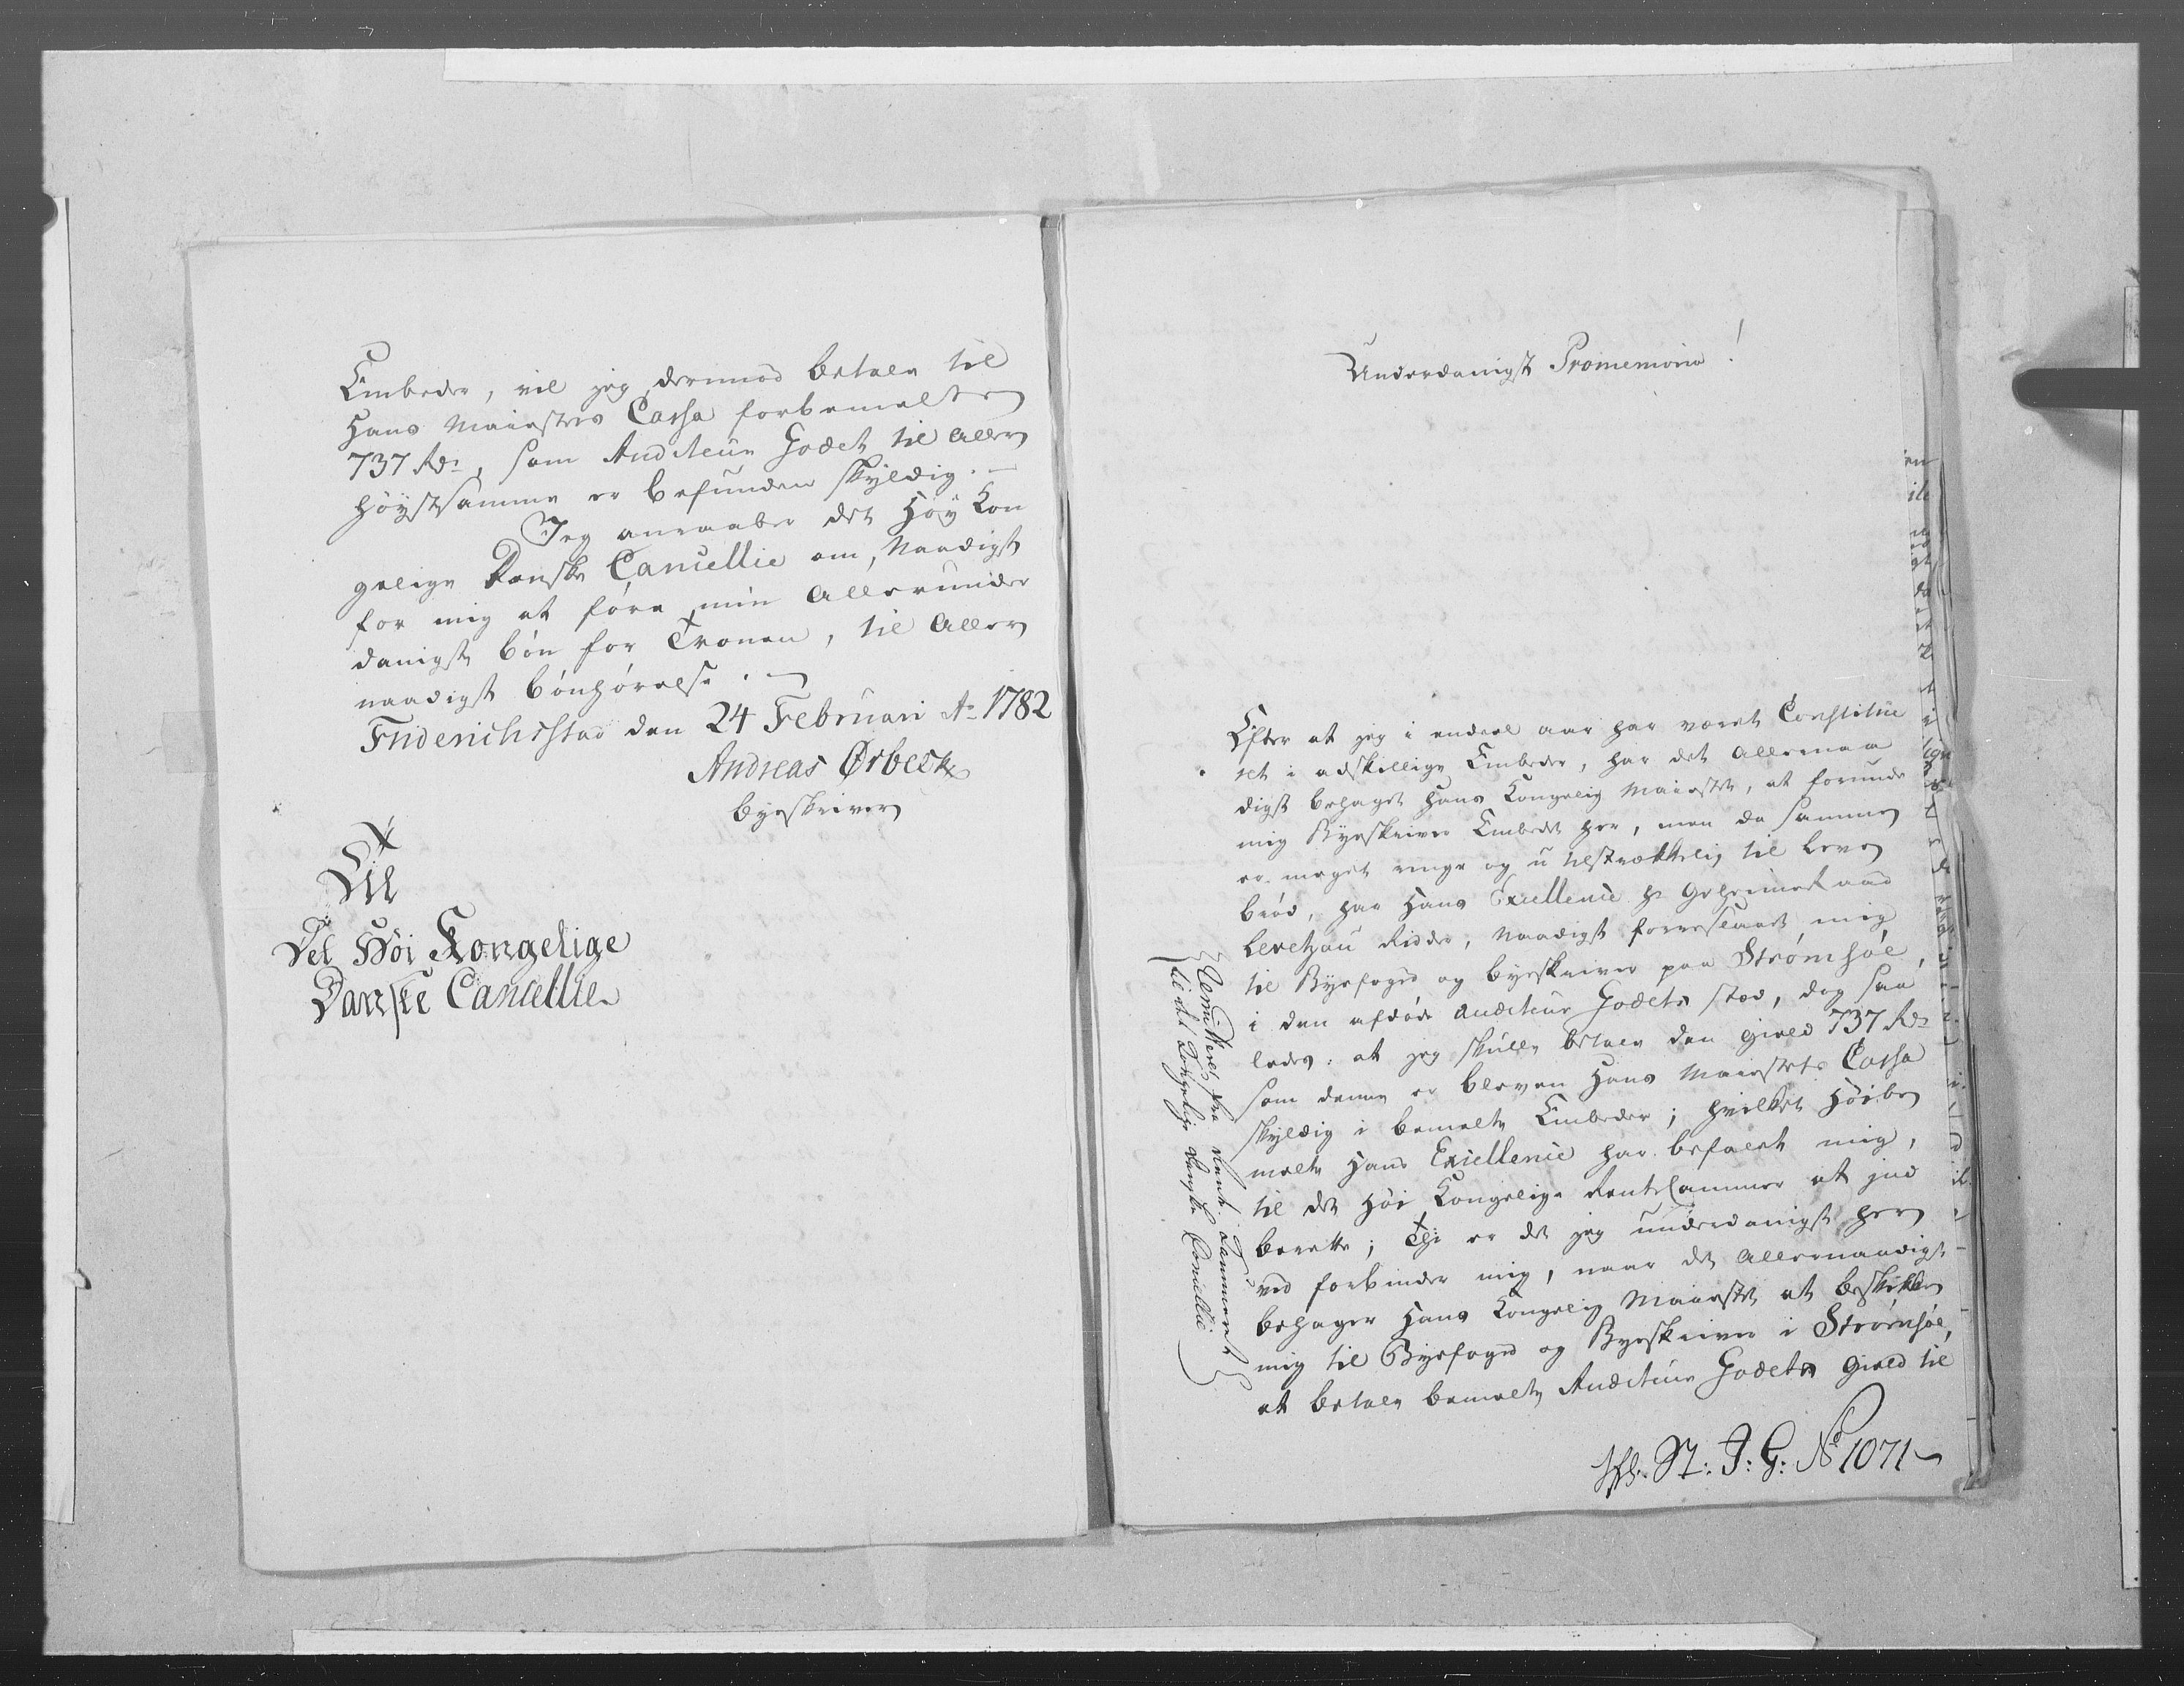 Embeder, vil jeg derimod betale til
Hans Maiestets Cassa forbemelte
737 Rdr, som Auditeur Godet til Aller
høystsamme er befunden skyldig. —
Jeg anraaber det Høy Kon
gelige Danske Cancellie om, Naadigst
for mig at føre min Allerunder
danigste bøn for Tronen, til Aller
naadigst bønhørelse. —
Friderichsstad den 24 Februari Ao 1782
Andreas Ørbeck
byeskriver
Til
Det Høi Kongelige
Danske Cancellie
Underdanigst Promemoria!
Efter at jeg i endeel aar har været Constitue
ret i adskillige Embeder, har det Allernaa
digst behaget Hans Kongelig Maiestet, at forunde
mig Byeskriver Embedet her, men da samme
er meget ringe og u tilstrækkelig til Leve
brød, har Hans Excellence Hr Geheimeraad
Levetzau Ridder, Naadigst foreslaaet mig
til Byefoged og byeskriver paa Strømsøe,
i den afdøde Auditeur Godets stæd, dog saa
ledes: at jeg skulle betale den gield 737 Rdr
som denne er bleven Hans Maiestets Cassa
skyldig i bemelte Embeder; hvilket Høibe
melte Hans Excellence har befalet mig,
til det Høi Kongelige RenteCammer at ind
berette; Thi er det jeg underdanigst her
ved forbinder mig, naar det Allernaadigst
behager Hans Kongelig Maiestet at beskikke
mig til Byefoged og Byeskriver i Strømsøe,
at betale bemelte Auditeur Godets gield til
Remitteres fra Rente Kammeret
til det Kongelige Danske Cancellie
St: J: G: No 1071